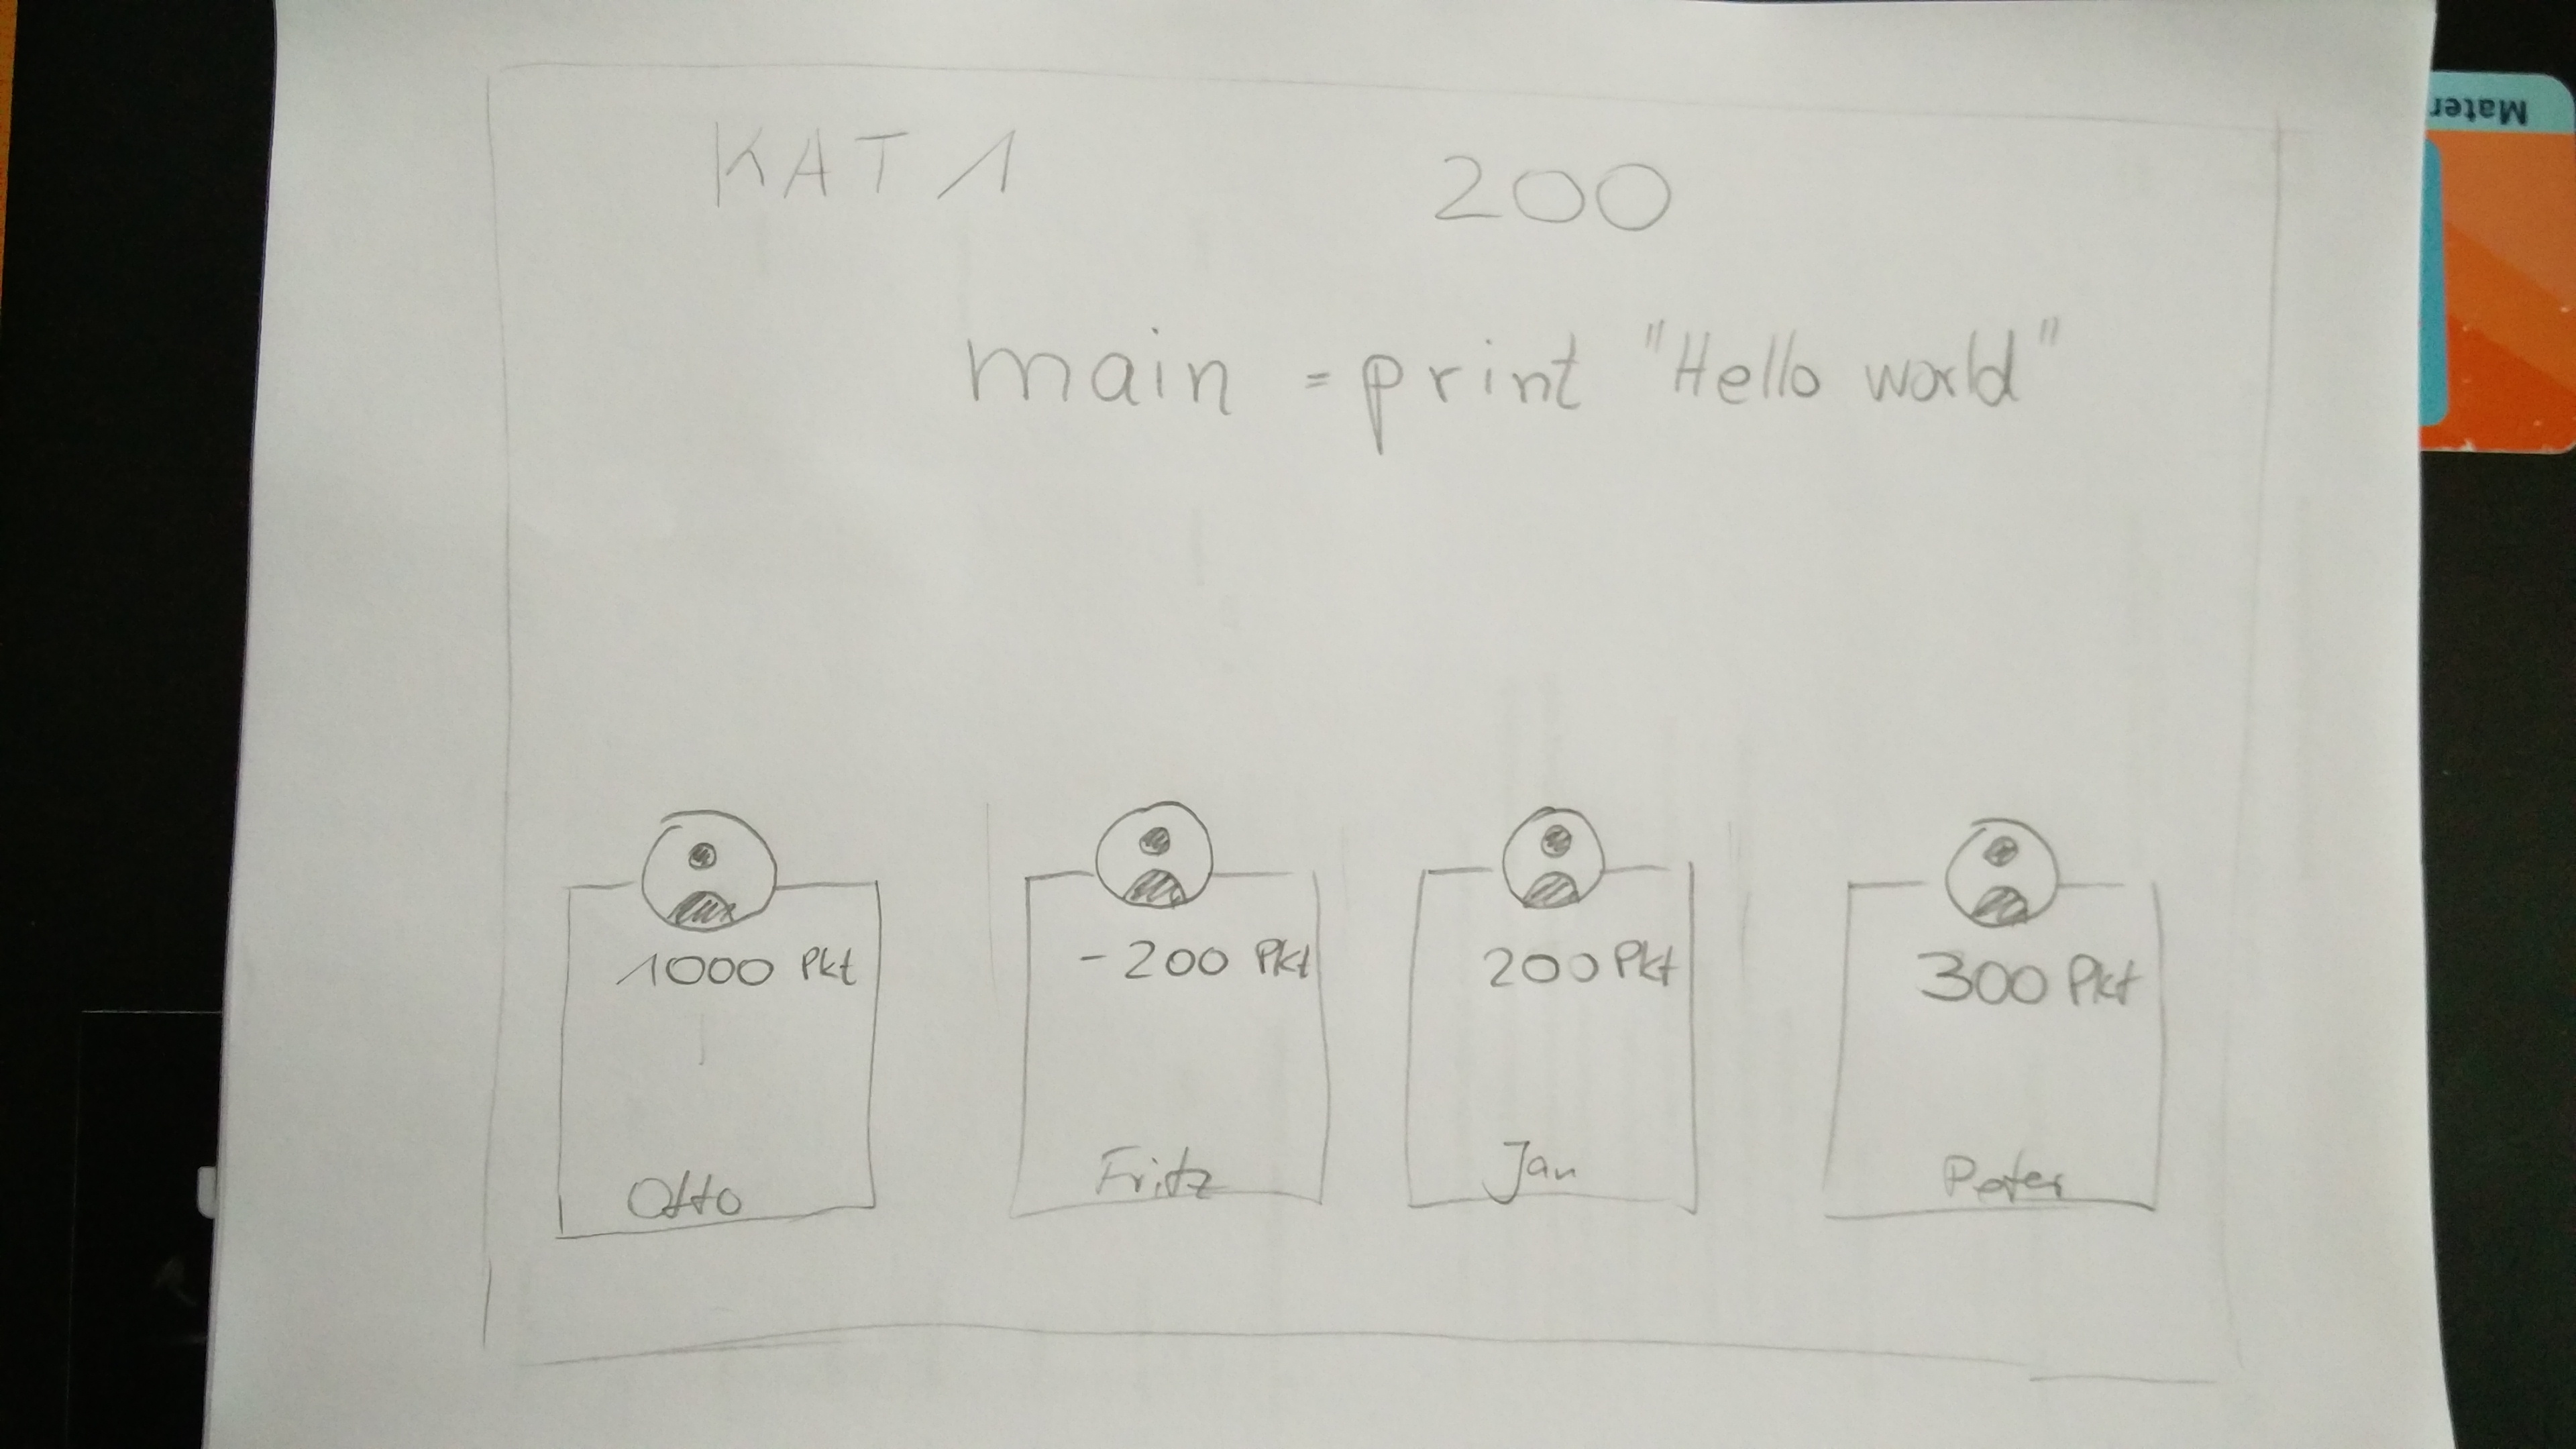 KAT 1 200
main = print "Hello world"
1000 Pkt
Otto
-200 Pkt
Fritz
200 Pkt
Jan
300 Pkt
Peter
Mater